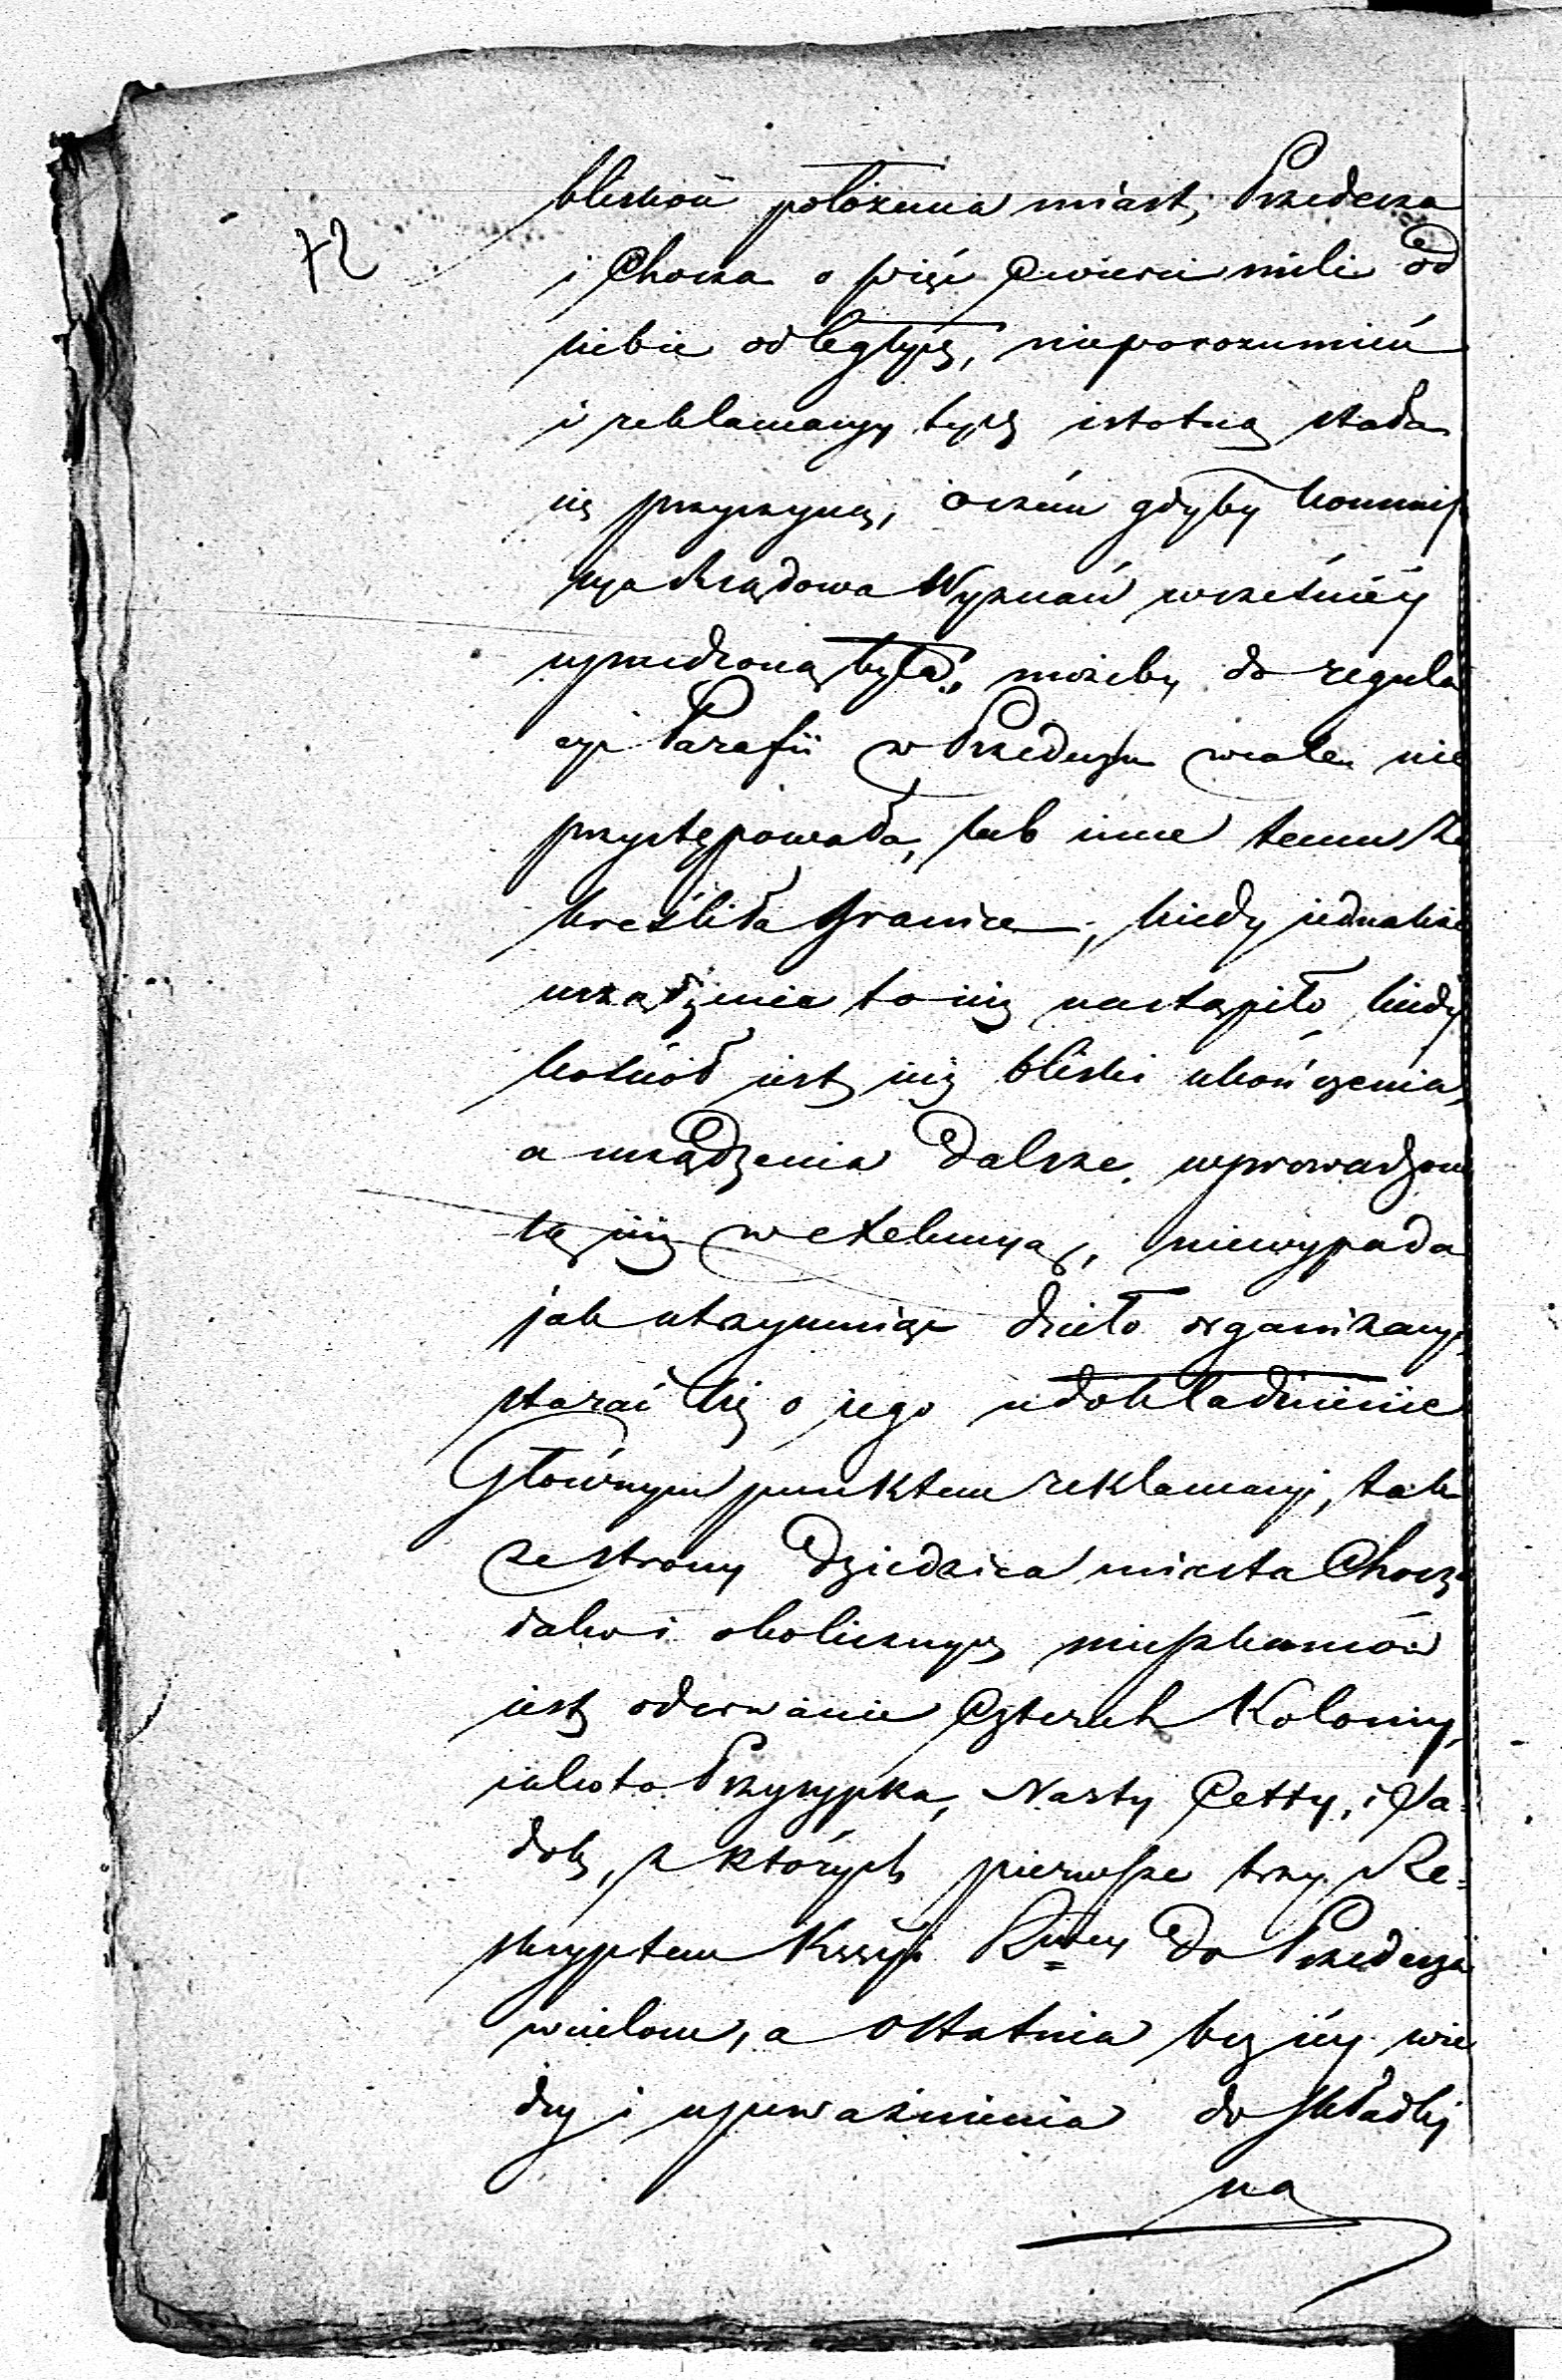 72
bliskość położenia miast, Przedecza
i Chocza o pięć Ćwierci mili od
siebie odległych, nieporozumień
i reklamacyy tych istotną stała
się przyczyną, o czém gdyby Kommis
sya Rządowa Wyznań wcześniéy
uprzedzoną była, możeby do regula
cyi Parafii w Przedczu wcale nie
przystępowała, lub inne temu za
kreśliła Granice, kiedy jednakże
urządzenie to iuż nastąpiło kiedy
kościół jest iuż bliski ukończenia,
a urządzenia dalsze wprowadzone
są iuż w exekucyą, niewypada
jak utrzymuiąc dzieło organizacyi,
starać się o jego udokładnienie
Głównym punktem reklamacyi, tak
ze strony Dziedzica miasta Chocza
jako i okolicznych mieszkańców
iest oderwanie Czterech Kolonij,
iako to Przysypka, Narty Cetty, i Pa=
dok, z których pierwsze trzy Re=
skryptem Kssyi Rdwey do Przedcza
wcielone, a ostatnia bez iéy wie
dzy i upoważnienia do składki
na